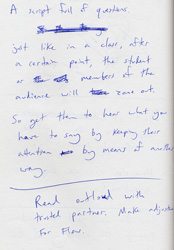 A script full of questions.
just like in a class, after
a certain point, the student
or members of the
audience will zone out.
So get them to hear what you
have to say by keeping their
attention by means of another
way.
Read outloud with
trusted partner. Make
For Flow.